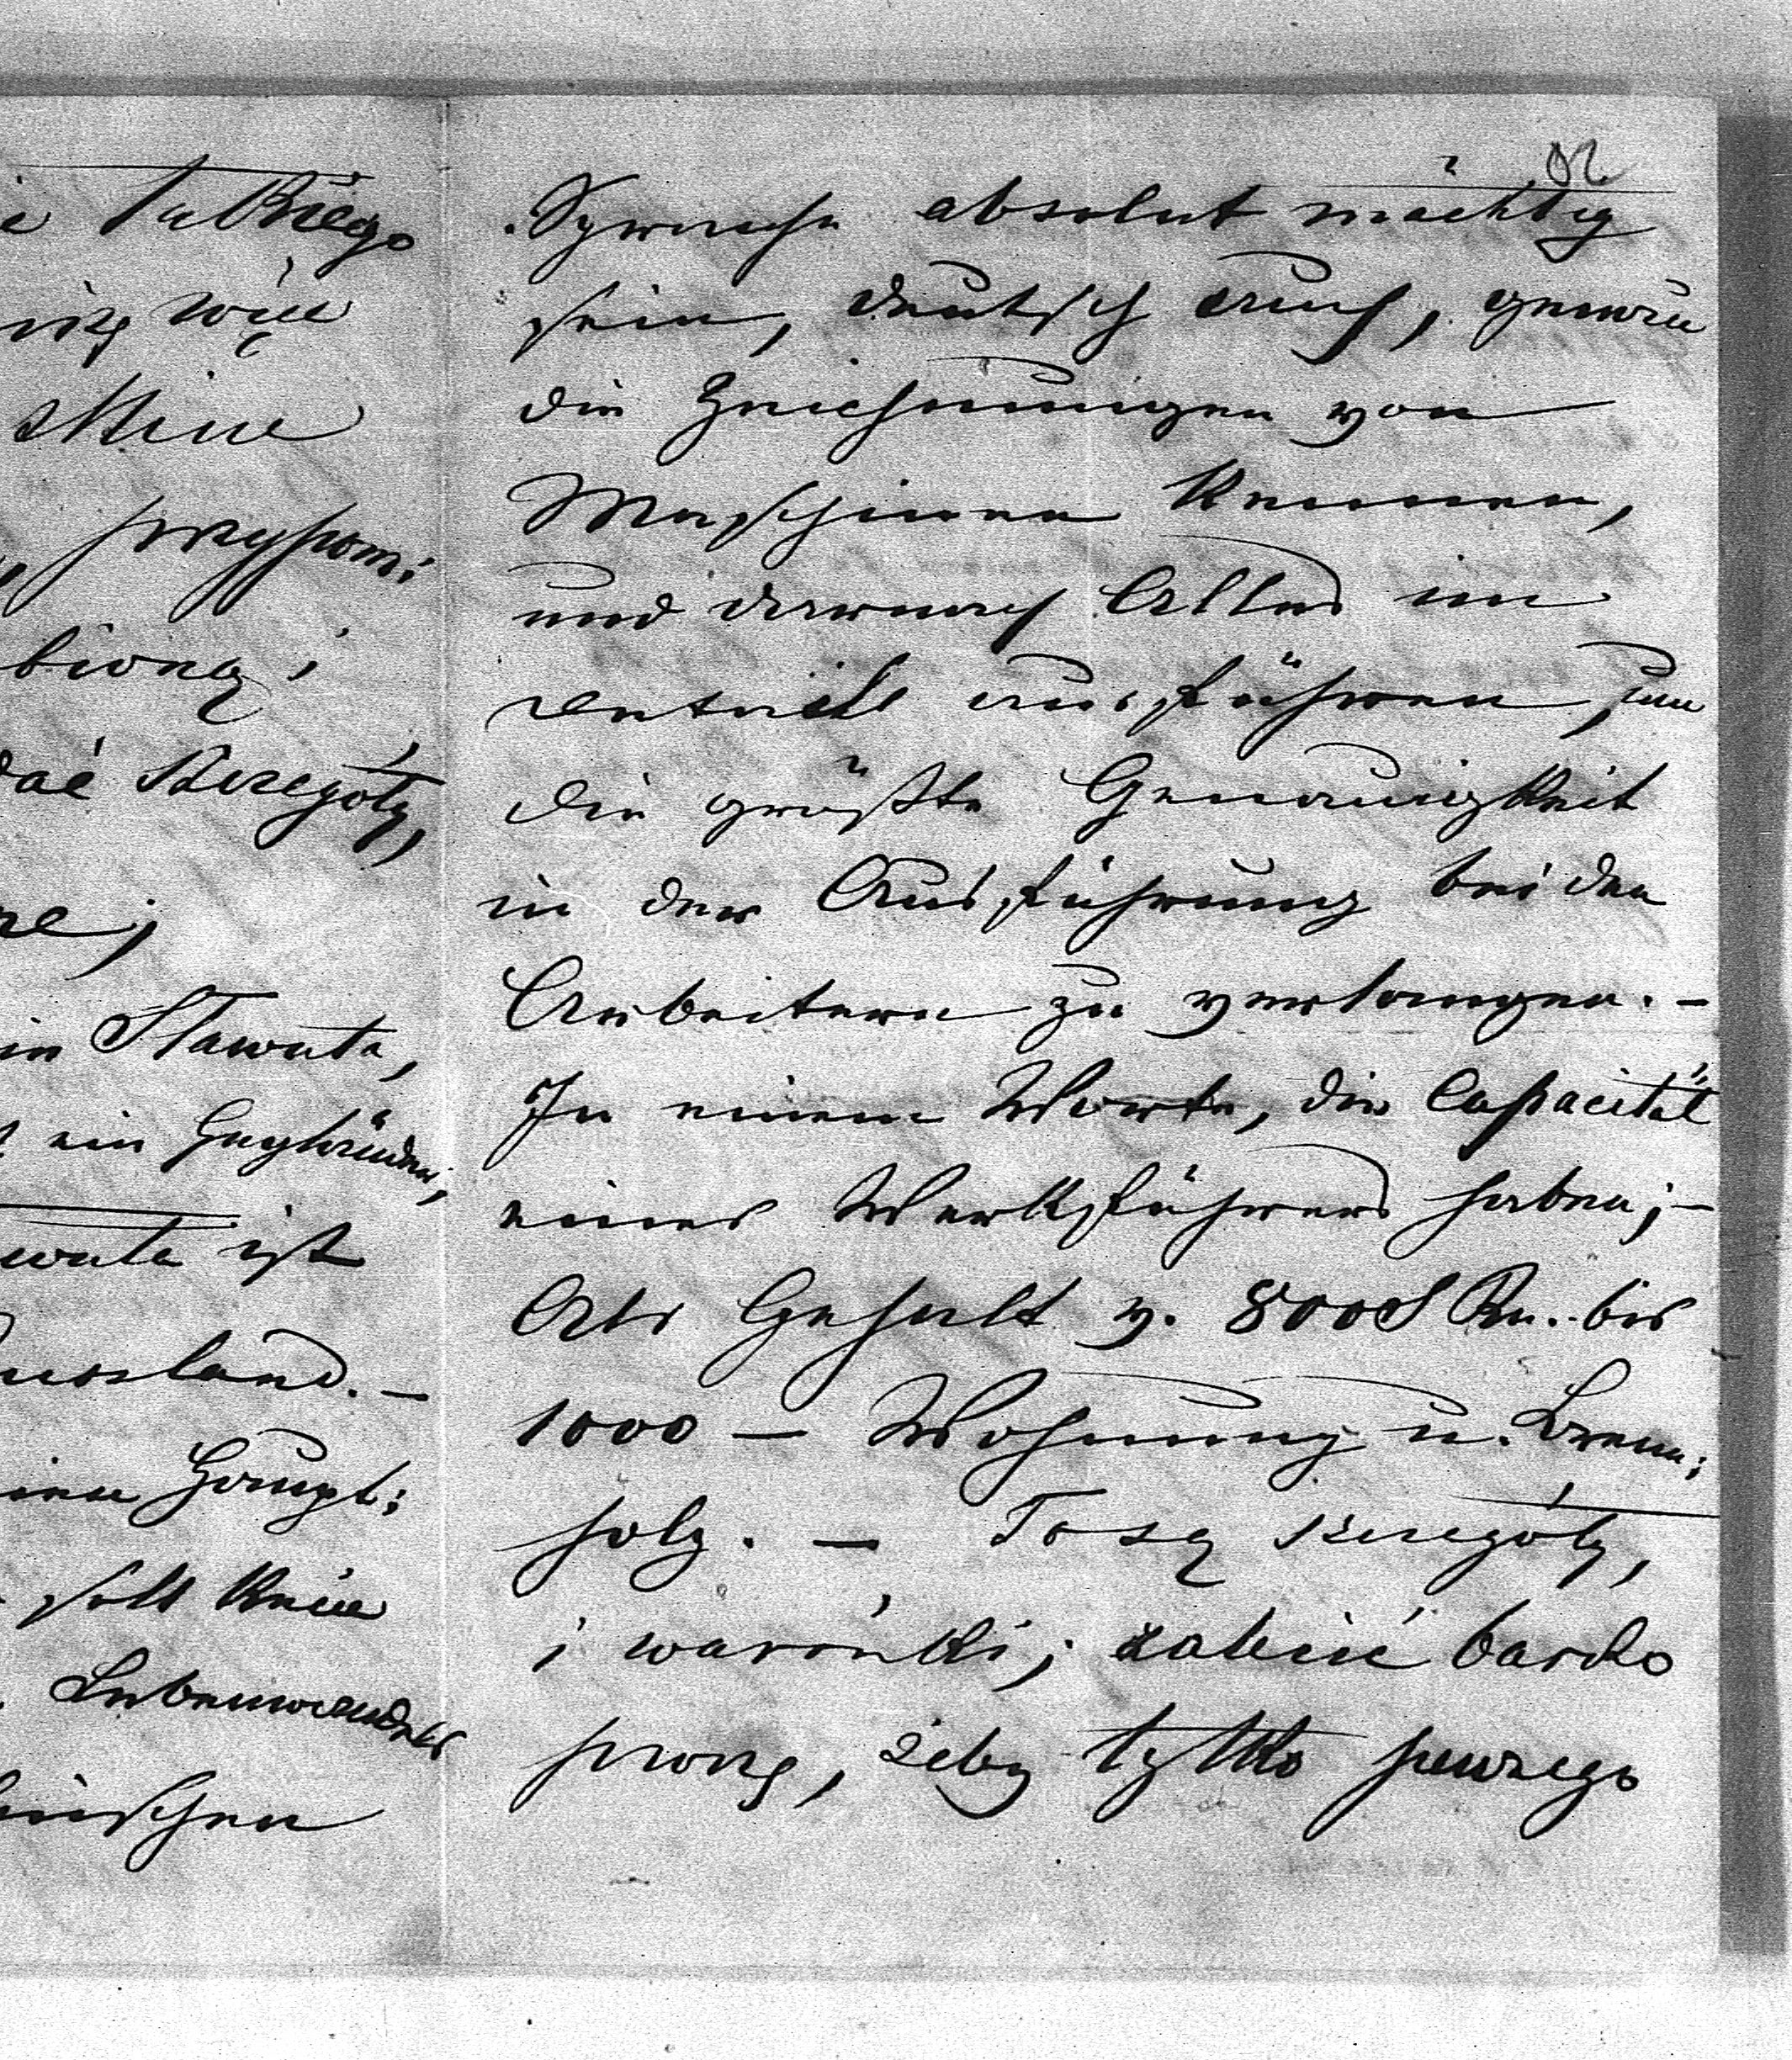 takiego
więc
Mine
przypom:
bioną i
dać szczegóły,
in Sławuta,
ein Gebäude,
wuta ist
Russland. –
einen Haupt:
soll kein
Lebenwandels
nischen
Sprache absolut mächtig
sein, deutsch auch, genau
die Zeichnungen von
Maschinen kennen,
und darnach Alles im
Detail ausführen, um
die größte Genauigkeit
in der Ausführung bei den
Arbeitern zu verlangen. –
In einem Worte, die Capacität
eines Werkführers haben; –
Als Gehalt v. 800 S Ru. bis
1000 – Wohnung u. Brenn:
holz. – To są szczegóły,
i warónki; zatem bardzo
proszę, żeby tylko pewnego